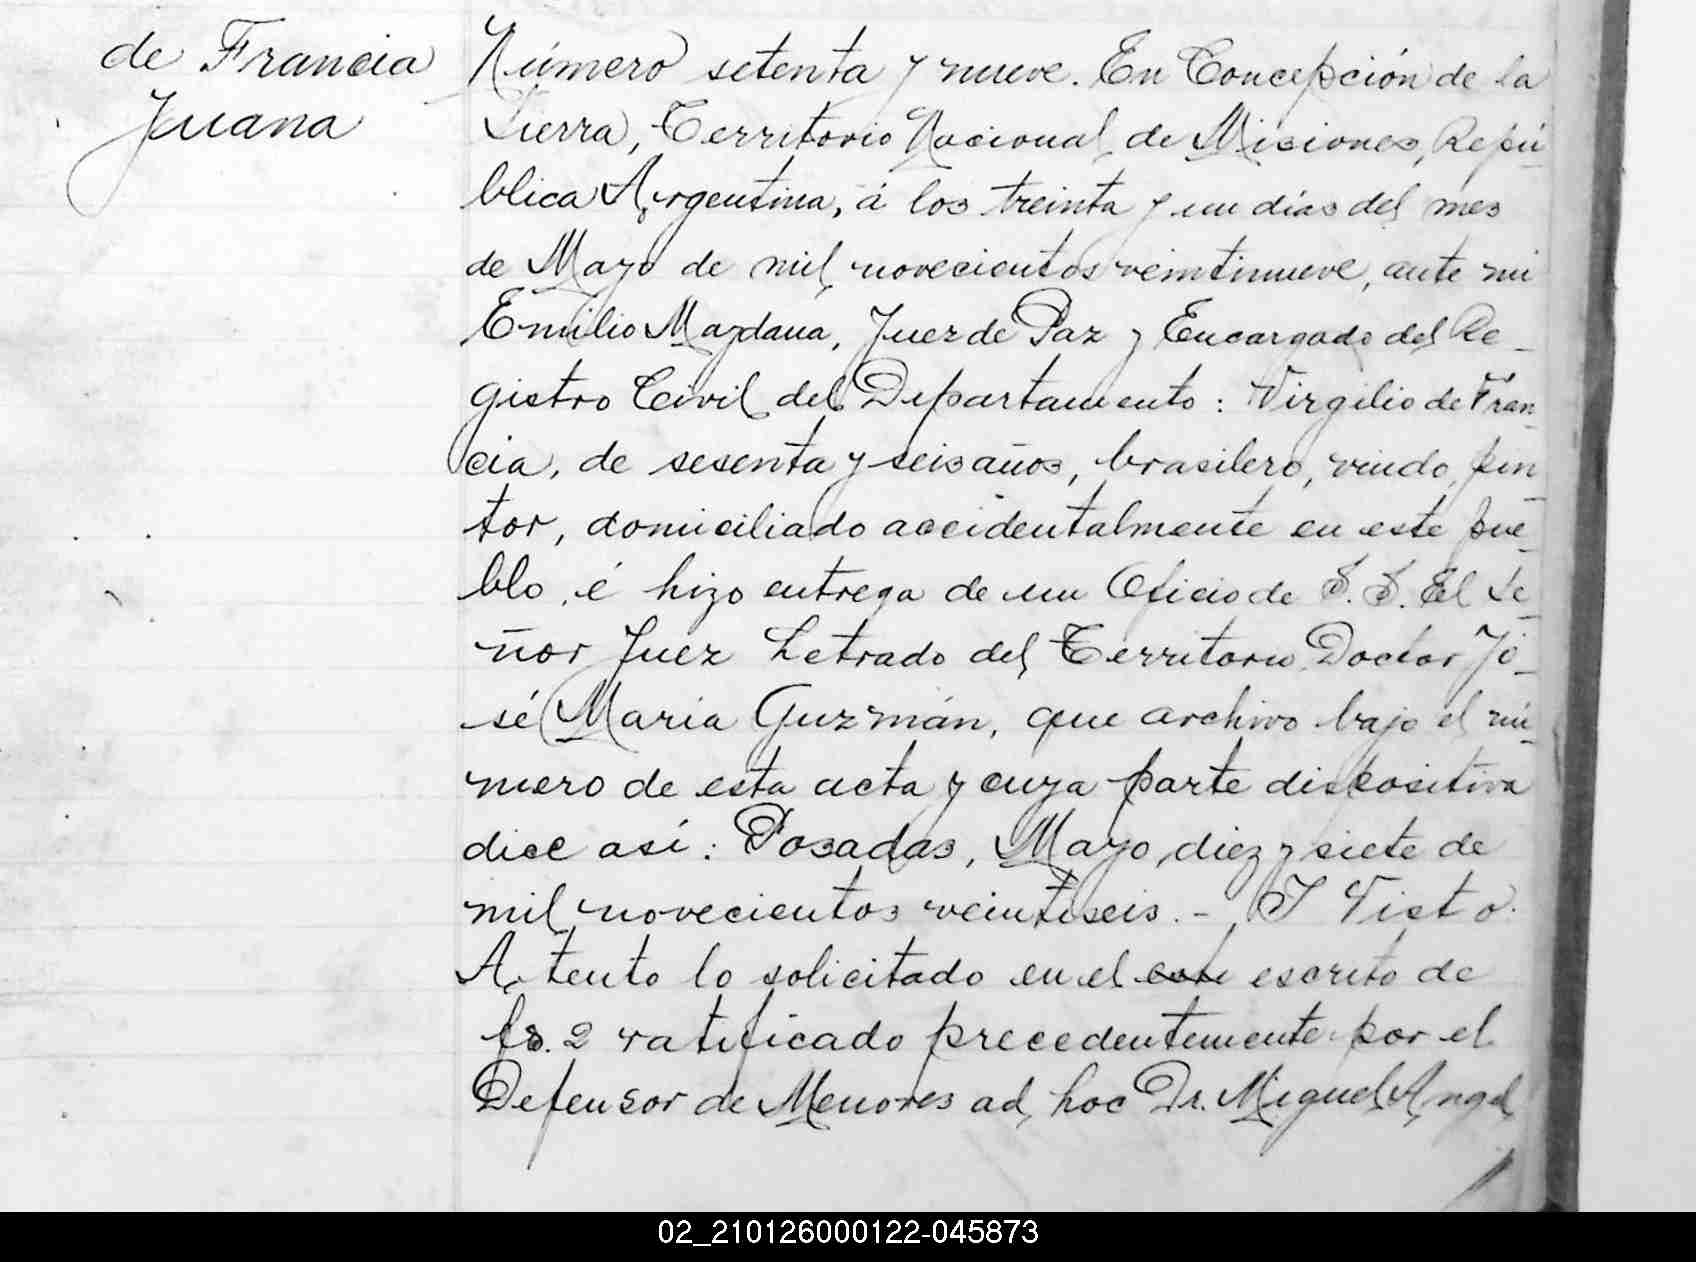 de Francia
Juana
Número setenta y nueve. En Concepción de la
Sierra, Territorio Nacional de Misiones, Repú-
blica Argentina, á los treinta y un días del mes
de Mayo de mil novecientos veintinueve, ante mi
Emilio Maydana, Juez de Paz y Encargado del Re-
gistro Civil del Departamento: Virgilio de Fran-
cia, de sesenta y seis años, brasilero, viudo, pin-
tor, domiciliado accidentalmente en este pue-
blo, é hizo entrega de un Oficio de S. S. El Se-
ñor Juez Letrado del Territorio Doctor Jo-
sé María Guzmán, que archivo bajo el nú-
mero de esta acta y cuya parte dispositiva
dice así: Posadas, Mayo diez y siete de
mil novecientos veintiseis. - Y Visto.
Atento lo solicitado en el este escrito de
fs. 2 ratificado precedentemente por el
Defensor de Menores ad hoc Dr. Miguel Angel
02_210126000122-045873